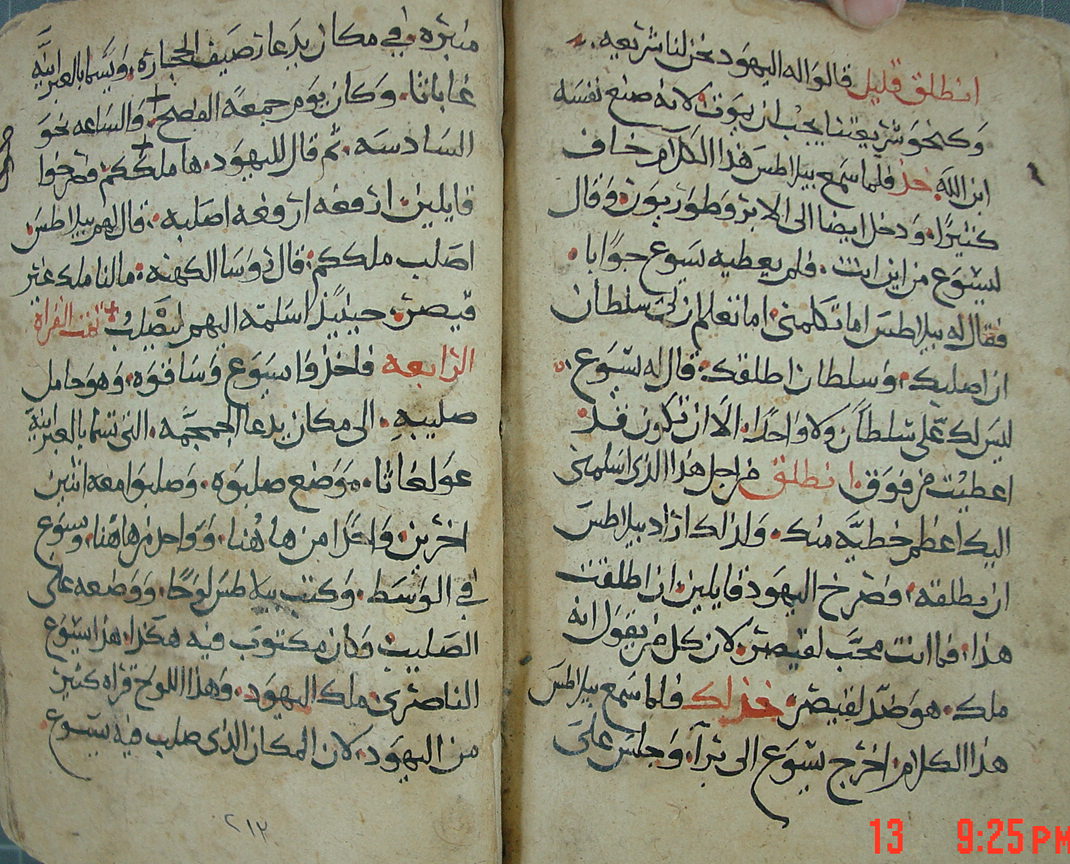 انطلق قليل قالوا له اليهود نحن لنا شريعه
وكنحو شريعتنا يجب ان يموت لانه صنع نفسه
ابن الله خذ فلما سمع بيلاطس هذا الكلام خاف
كثيرا ودخل ايضا الى الابرو وقال
ليسوع من اين انت فلم يعطيه يسوع جوابا
فقال له بيلاطس اما تكلمني اما تعلم ان لي سلطان
ان اصلبك وسلطان اطلقك قال له يسوع
ليس لك علي سلطان ولا واحدا الا ان تكون قد
اعطيت من فوق انطلق من اجل هذا الذي اسلمني
اليك اعظم خطيه منك ولذلك اراد بيلاطس
ان يطلقه فصرخ اليهود قايلين ان اطلقت
هذا فما انت محب لقيصر لان كل من يقول انه
ملك هو ضد لقيصر خذ لك فلما سمع بيلاطس
هذا الكلام اخرج يسوع الى برا وجلس على
منبره في مكان يدعا رصيف الحجاره ويسما بالعبرانيه
غاباثا وكان يوم جمعة الفصح والساعه نحو
السادسه ثم قال لليهود ها ملككم فصرخوا
قايلين ارفعه ارفعه اصلبه قال لهم بيلاطس
اصلب ملككم قال روسا الكهنه ما لنا ملك غير
قيصر حينيذ اسلمه اليهم ليصلب تمت القراة
الرابعه فاخذوا يسوع وساقوه وهو حامل
صليبه الى مكان يدعا الجمجمه التي تسما بالعبرانيه
موضع صلبوه وصلبوا معه اثنين
اخرين واحدا من هاهنا وواحد من هاهنا ويسوع
في الوسط وكتب بيلاطس لوحا ووضعه على
الصليب وكان مكتوب فيه هكذا هذا يسوع
الناصري ملك اليهود وهذا اللوح قراه كثير
من اليهود لان المكان الذي صلب فيه يسوع
٢١٢
13 9:25PM